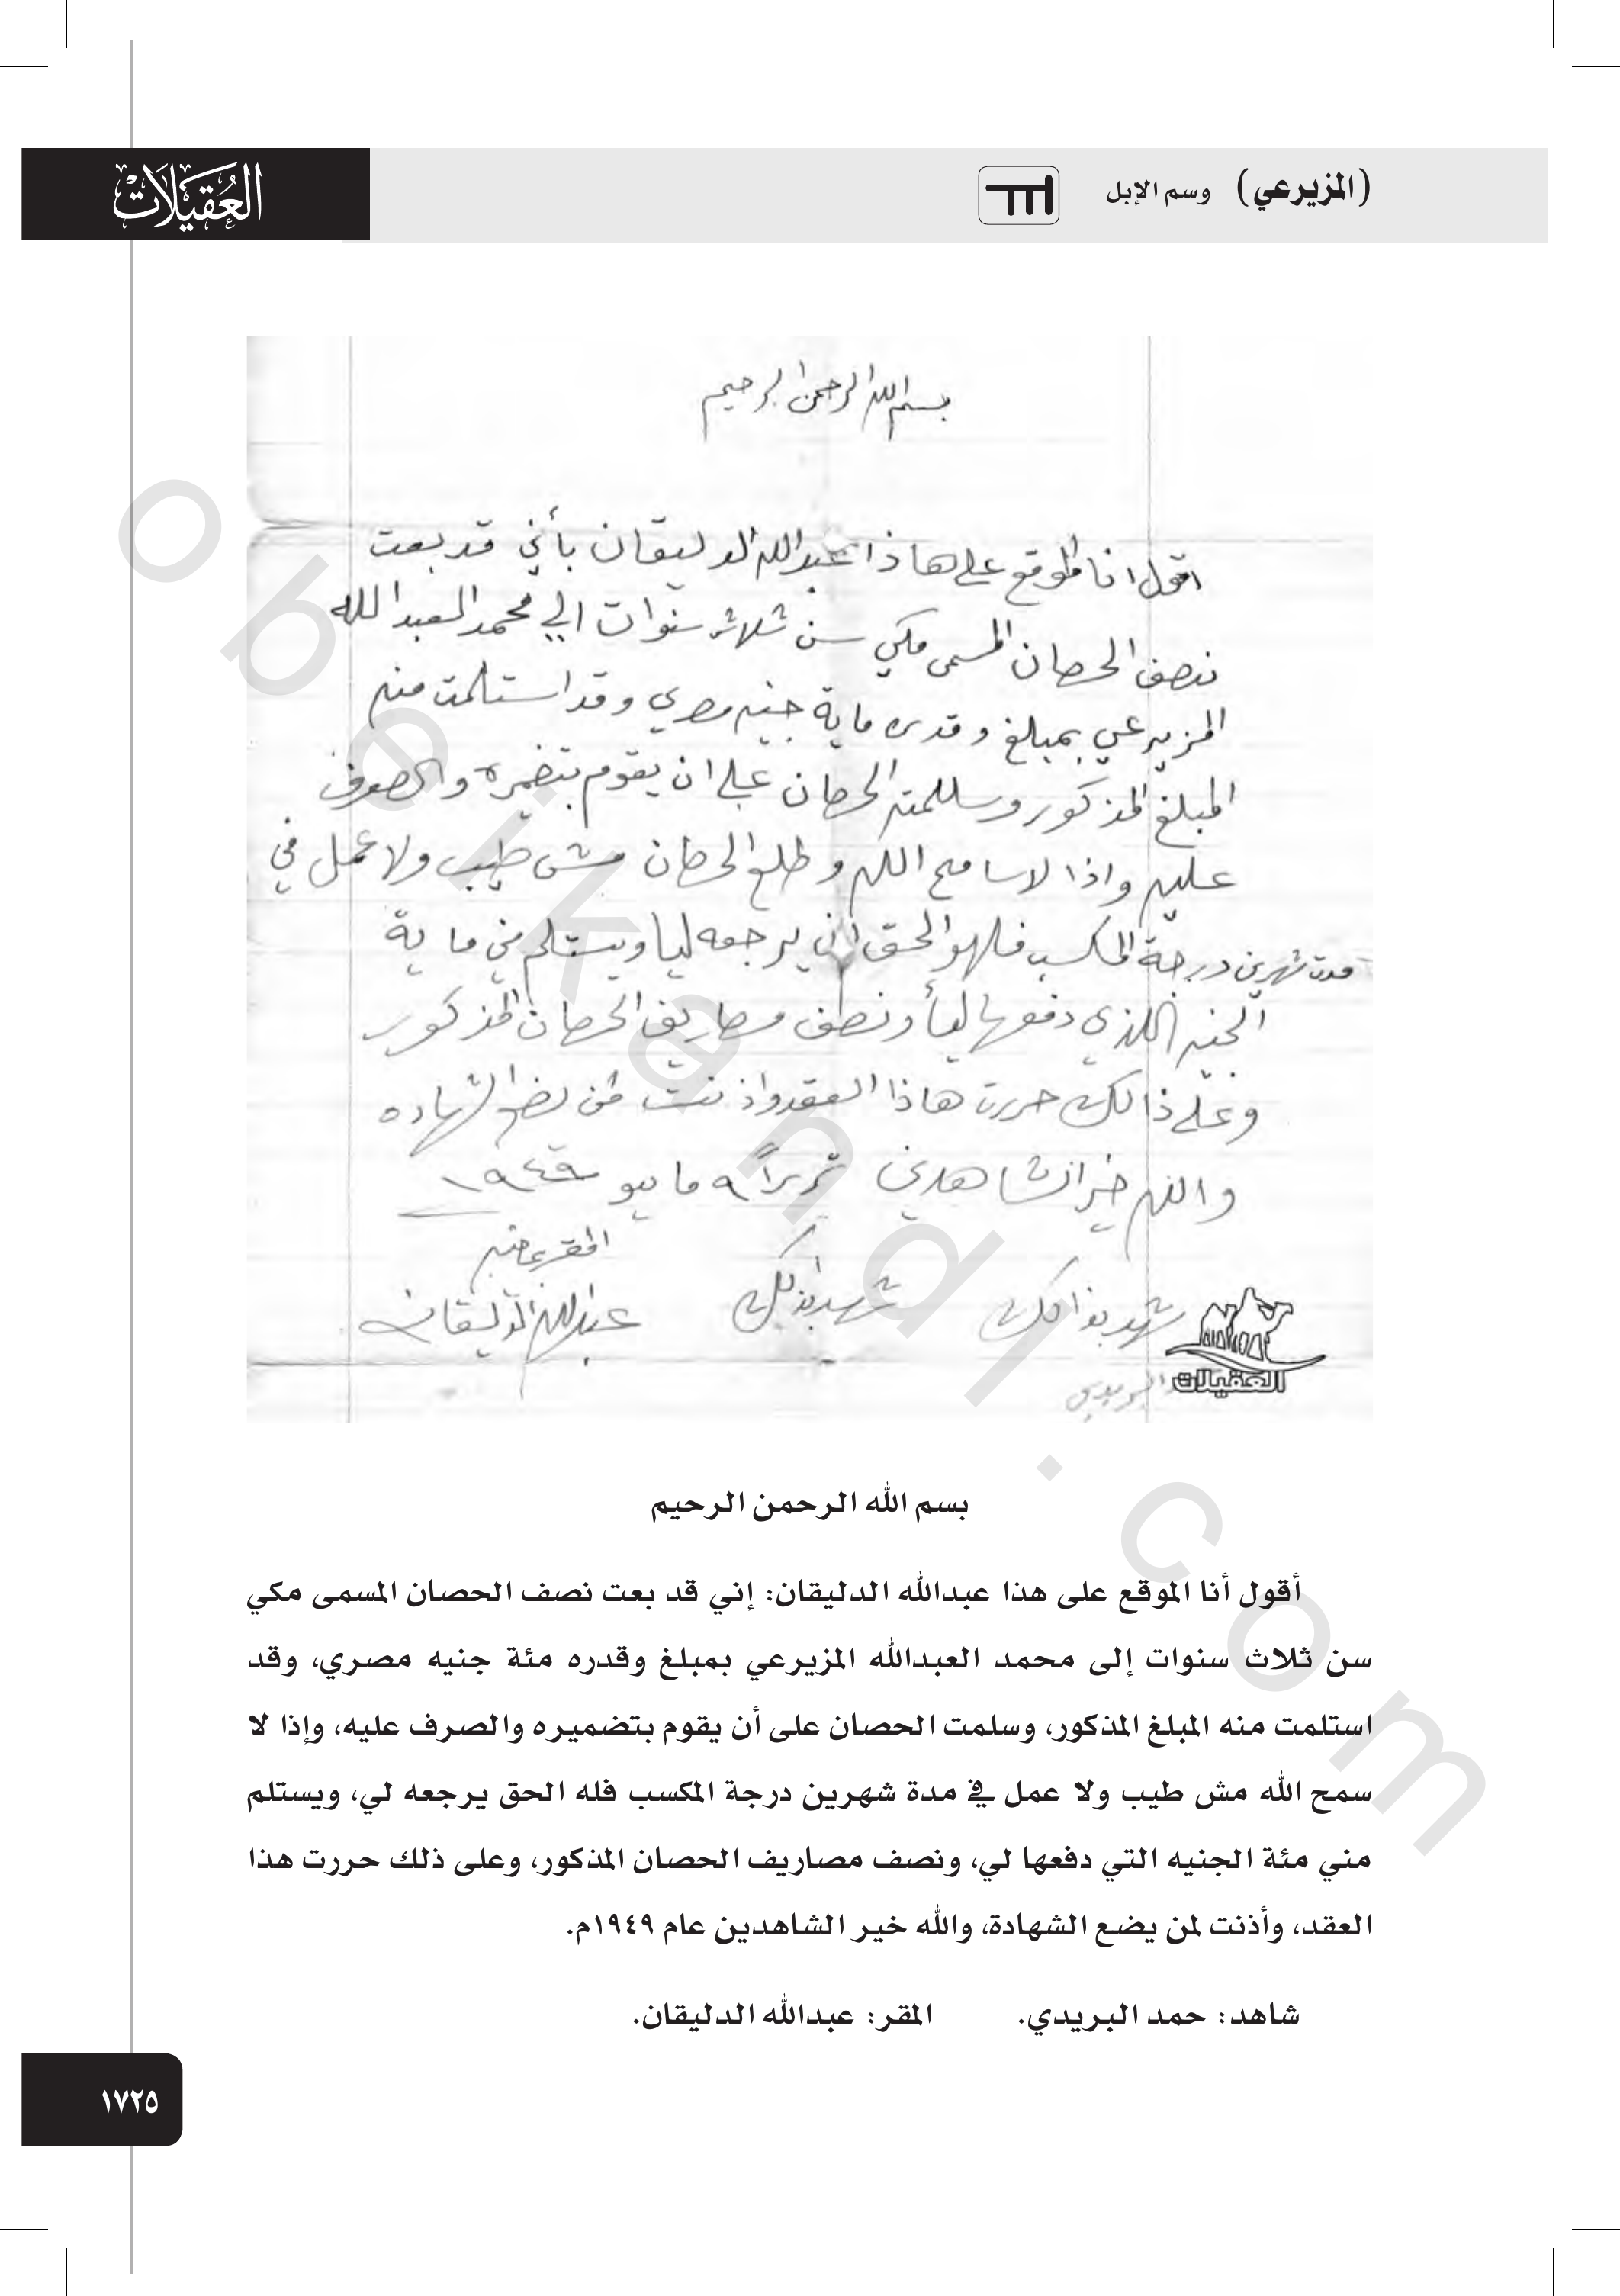 (المزيرعي) وسم الإبل
العقيلات
بسم الله الرحمن الرحيم
اقول انا الموقع على هاذا عبدالله الدليقان بأني قد بعت
نصف الحصان المسمى مكي سن ثلاث سنوات الي محمد العبدالله
المزيرعي بمبلغ وقدره ماية جنيه مصري وقد استلمت منه
المبلغ المذكور وسللمته الحصان على ان يقوم بتضميره والصرف
عليه واذا لاسامح الله وطلع الحصان مش طيب ولا عمل في
مدت شهرين درجة المكسب فلهو الحق ان يرجعه ليا ويستلم مني ماية
الجنيه اللذي دفعها ليا ونصف مصاريف الحصان المذكور
وعلى ذالك حررت هاذا العقد واذنت لمن يضع الشهاده
والله خير الشاهدين ٩ مايو ١٩٤٩
المقر بما فيه
شهد بذالك شهد بذلك عبدالله الدليقان
العقيلات
البريدي
بسم الله الرحمن الرحيم
أقول أنا الموقع على هذا عبدالله الدليقان: إني قد بعت نصف الحصان المسمى مكي
سن ثلاث سنوات إلى محمد العبدالله المزيرعي بمبلغ وقدره مئة جنيه مصري، وقد
استلمت منه المبلغ المذكور، وسلمت الحصان على أن يقوم بتضميره والصرف عليه، وإذا لا
سمح الله مش طيب ولا عمل في مدة شهرين درجة المكسب فله الحق يرجعه لي، ويستلم
مني مئة الجنيه التي دفعها لي، ونصف مصاريف الحصان المذكور، وعلى ذلك حررت هذا
العقد، وأذنت لمن يضع الشهادة، والله خير الشاهدين عام ١٩٤٩م.
شاهد: حمد البريدي. المقر: عبدالله الدليقان.
١٧٢٥
obeikandl.com